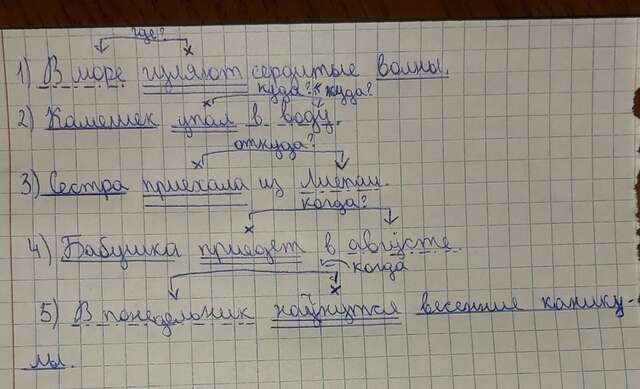 где?
1) В море гуляют сердитые волны.
куда? куда?
2) Камешек упал в воду.
откуда?
3) Сестра приехала из Лиепаи.
когда?
4) Бабушка приедет в августе.
когда
5) В понедельник начнутся весенние канику-
лы.